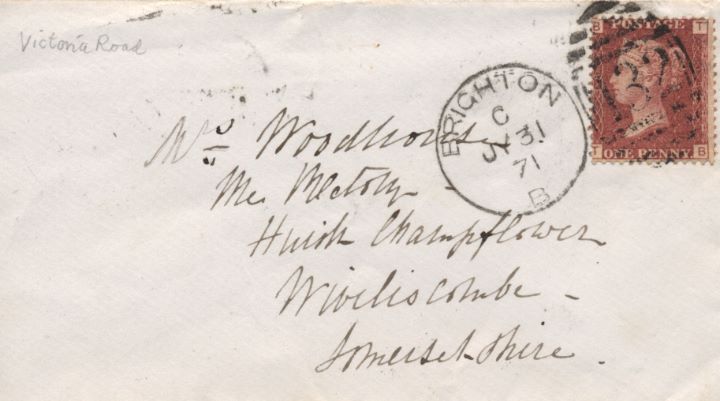 Victoria Road
B POSTAGE T
132
T ONE PENNY B
BRIGHTON
C
JY 31
71
B
Mrs Woodhouse
The Rectory -
Huish Champflower
Wiveliscombe -
Somersetshire.